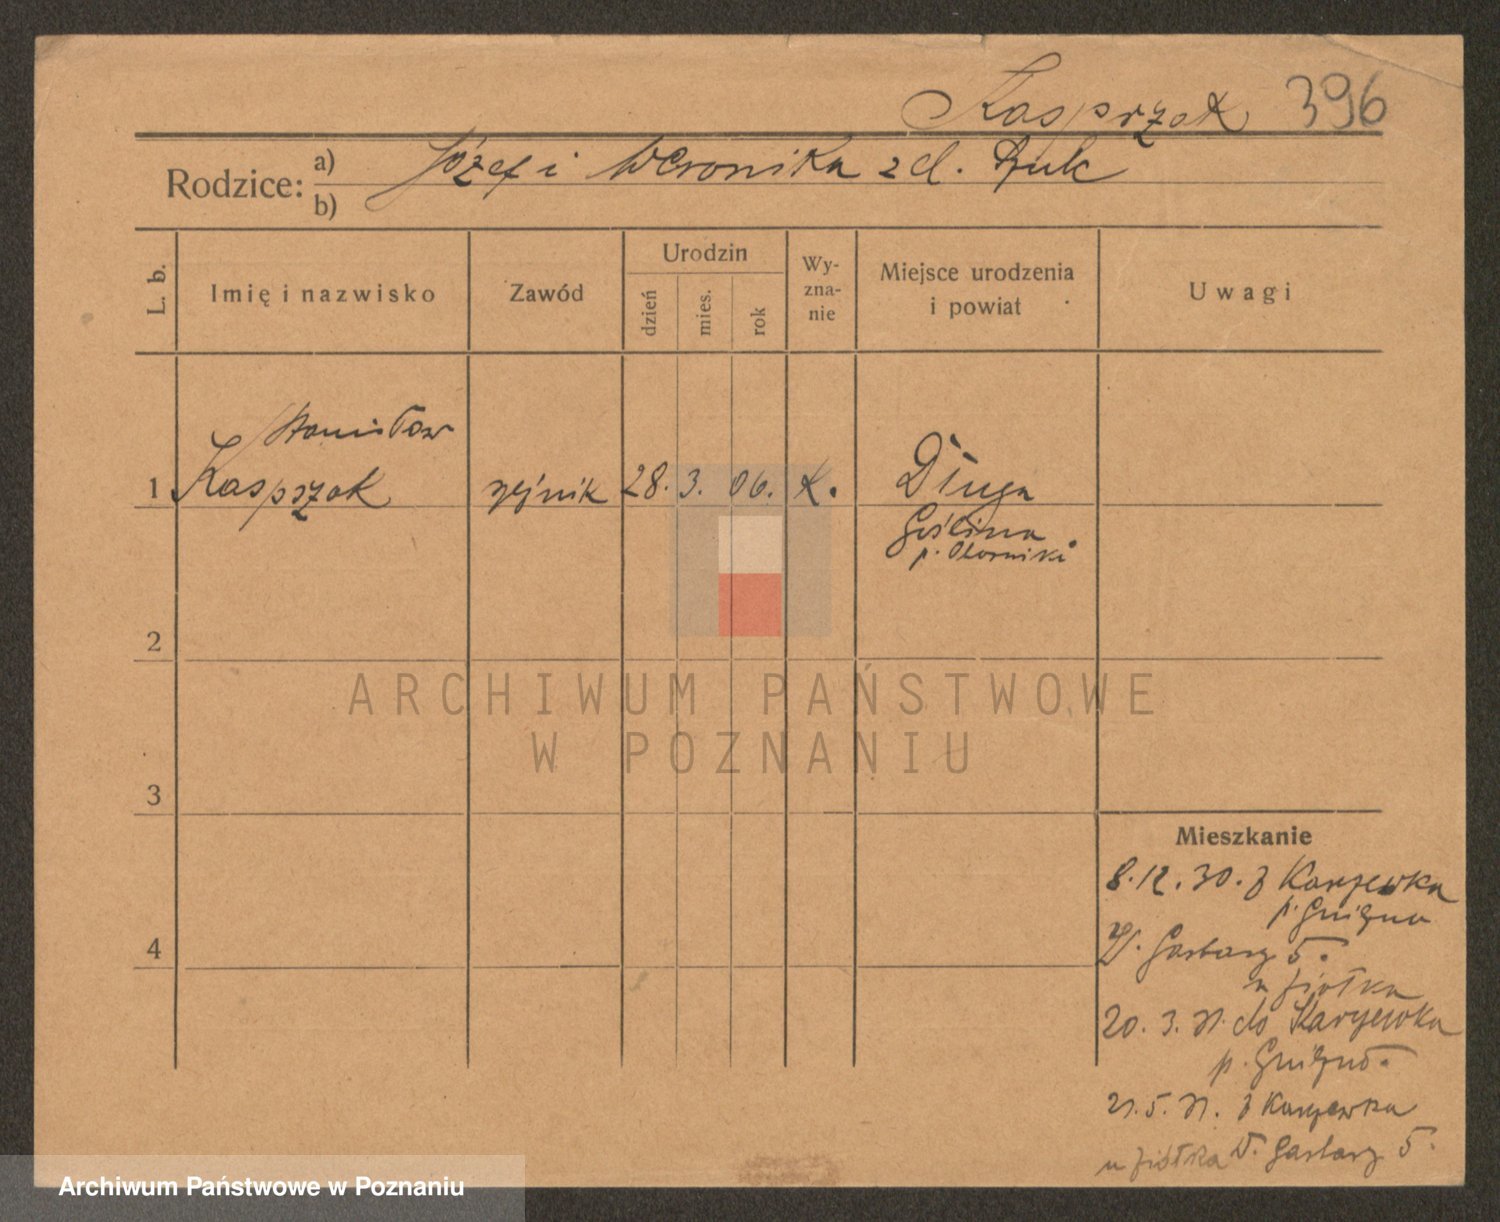 Kasprzak 396
Rodzice: a) Józef i Weronika z d.
b)
L. b.
Imię i nazwisko
Zawód
Urodzin
dzień
mies.
rok
Wy-
zna-
nie
Miejsce urodzenia
i powiat
Uwagi
Stanisław
1 Kasprzak rzeźnik 28. 3. 06. K. Długa
Goślina
p. Oborniki
2
3
4
Mieszkanie
8.12.30. z
p. Gniezno
W. Garbary 5.
u Ziółka
20. 3. 31. do
p. Gniezno.
21. 5. 31. z
u Ziółka W. Garbary 5.
ARCHIWUM PAŃSTWOWE
W POZNANIU
Archiwum Państwowe w Poznaniu